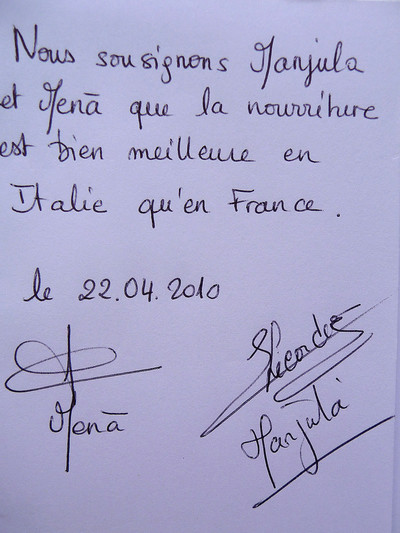 Nous sousignons Manjula
et Menā que la nourriture
est bien meilleure en
Italie qu'en France.
le 22.04.2010
Menā
Manjula